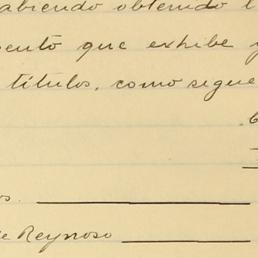 abiendo obtenido l
ento que exhibe y
títulos, como sigue
6
os.
de Reynoso